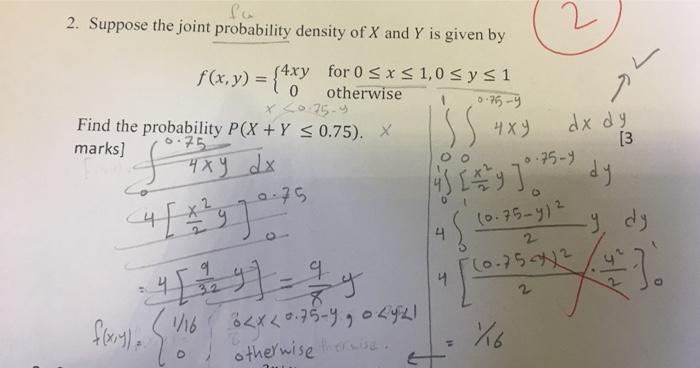 2
2. Suppose the joint probability density of X and Y is given by
f(x,y) = {4xy for 0 ≤ x ≤ 1, 0 ≤ y ≤ 1
0 otherwise
x < 0.75-y
Find the probability P(X + Y ≤ 0.75). ×
[3
marks]
∫₀^0.75 4xy dx
4[x²/2 y]₀^0.75
= 4[9/32 y] = 9/8 y
f(x,y) = { 1/16 , 0<x<0.75-y, 0<y<1
0 , otherwise
∫₀^1 ∫₀^0.75-y 4xy dx dy
4∫₀^1 [x²/2 y]₀^0.75-y dy
4∫₀^1 (0.75-y)²/2 y dy
4[(0.75-y)²/2 · y²/2]₀^1
= 1/16